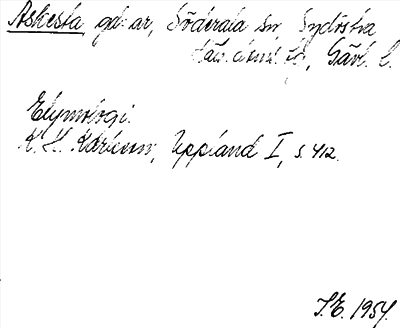 Askesta gd:ar, Söderala sn, Sydöstra
Häls. doms. td, Gävl. l.
Etymologi.
K. H. Karlsson, Uppland I, s. 412.
J.E. 1954.